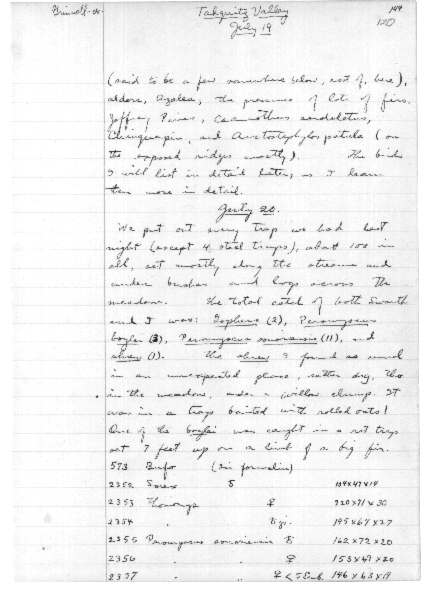 Grinnell - '08
Tahquitz Valley
July 19
144
120
(said to be a few somewhere below, east of, here),
alders, Azalea, the presence of lots of firs,
Jeffrey Pines, Ceanothus cordulatus,
Chinquapin, and Arctostaphylos patula (on
the exposed ridges mostly). The birds
I will list in detail later, as I learn
them more in detail.
July 20.
We put out every trap we had last
night (except 4 steel traps), about 100 in
all, set mostly along the streams and
under bushes and logs across the
meadow. The total catch of both Swarth
and I was: Gophers (2), Peromyscus
boylei (3), Peromyscus sonoriensis (11), and
shrew (1). The shrew I found as usual
in an unexpected place, rather dry, tho
in the meadow, under a willow clump. It
was in a trap baited with rolled oats!
One of the boylei was caught in a rat trap
set 7 feet up on a limb of a big fir.
573 Bufo (in formalin)
2352 Sorex ♂ 104x41x14
2353 Thomomys ♀ 220x71x30
2354 " ♂ 195x67x27
2355 Peromyscus sonoriensis ♂ 162x72x20
2356 " " ♀ 153x67x20
2357 " " ♀ 5 Emb. 146x63x19